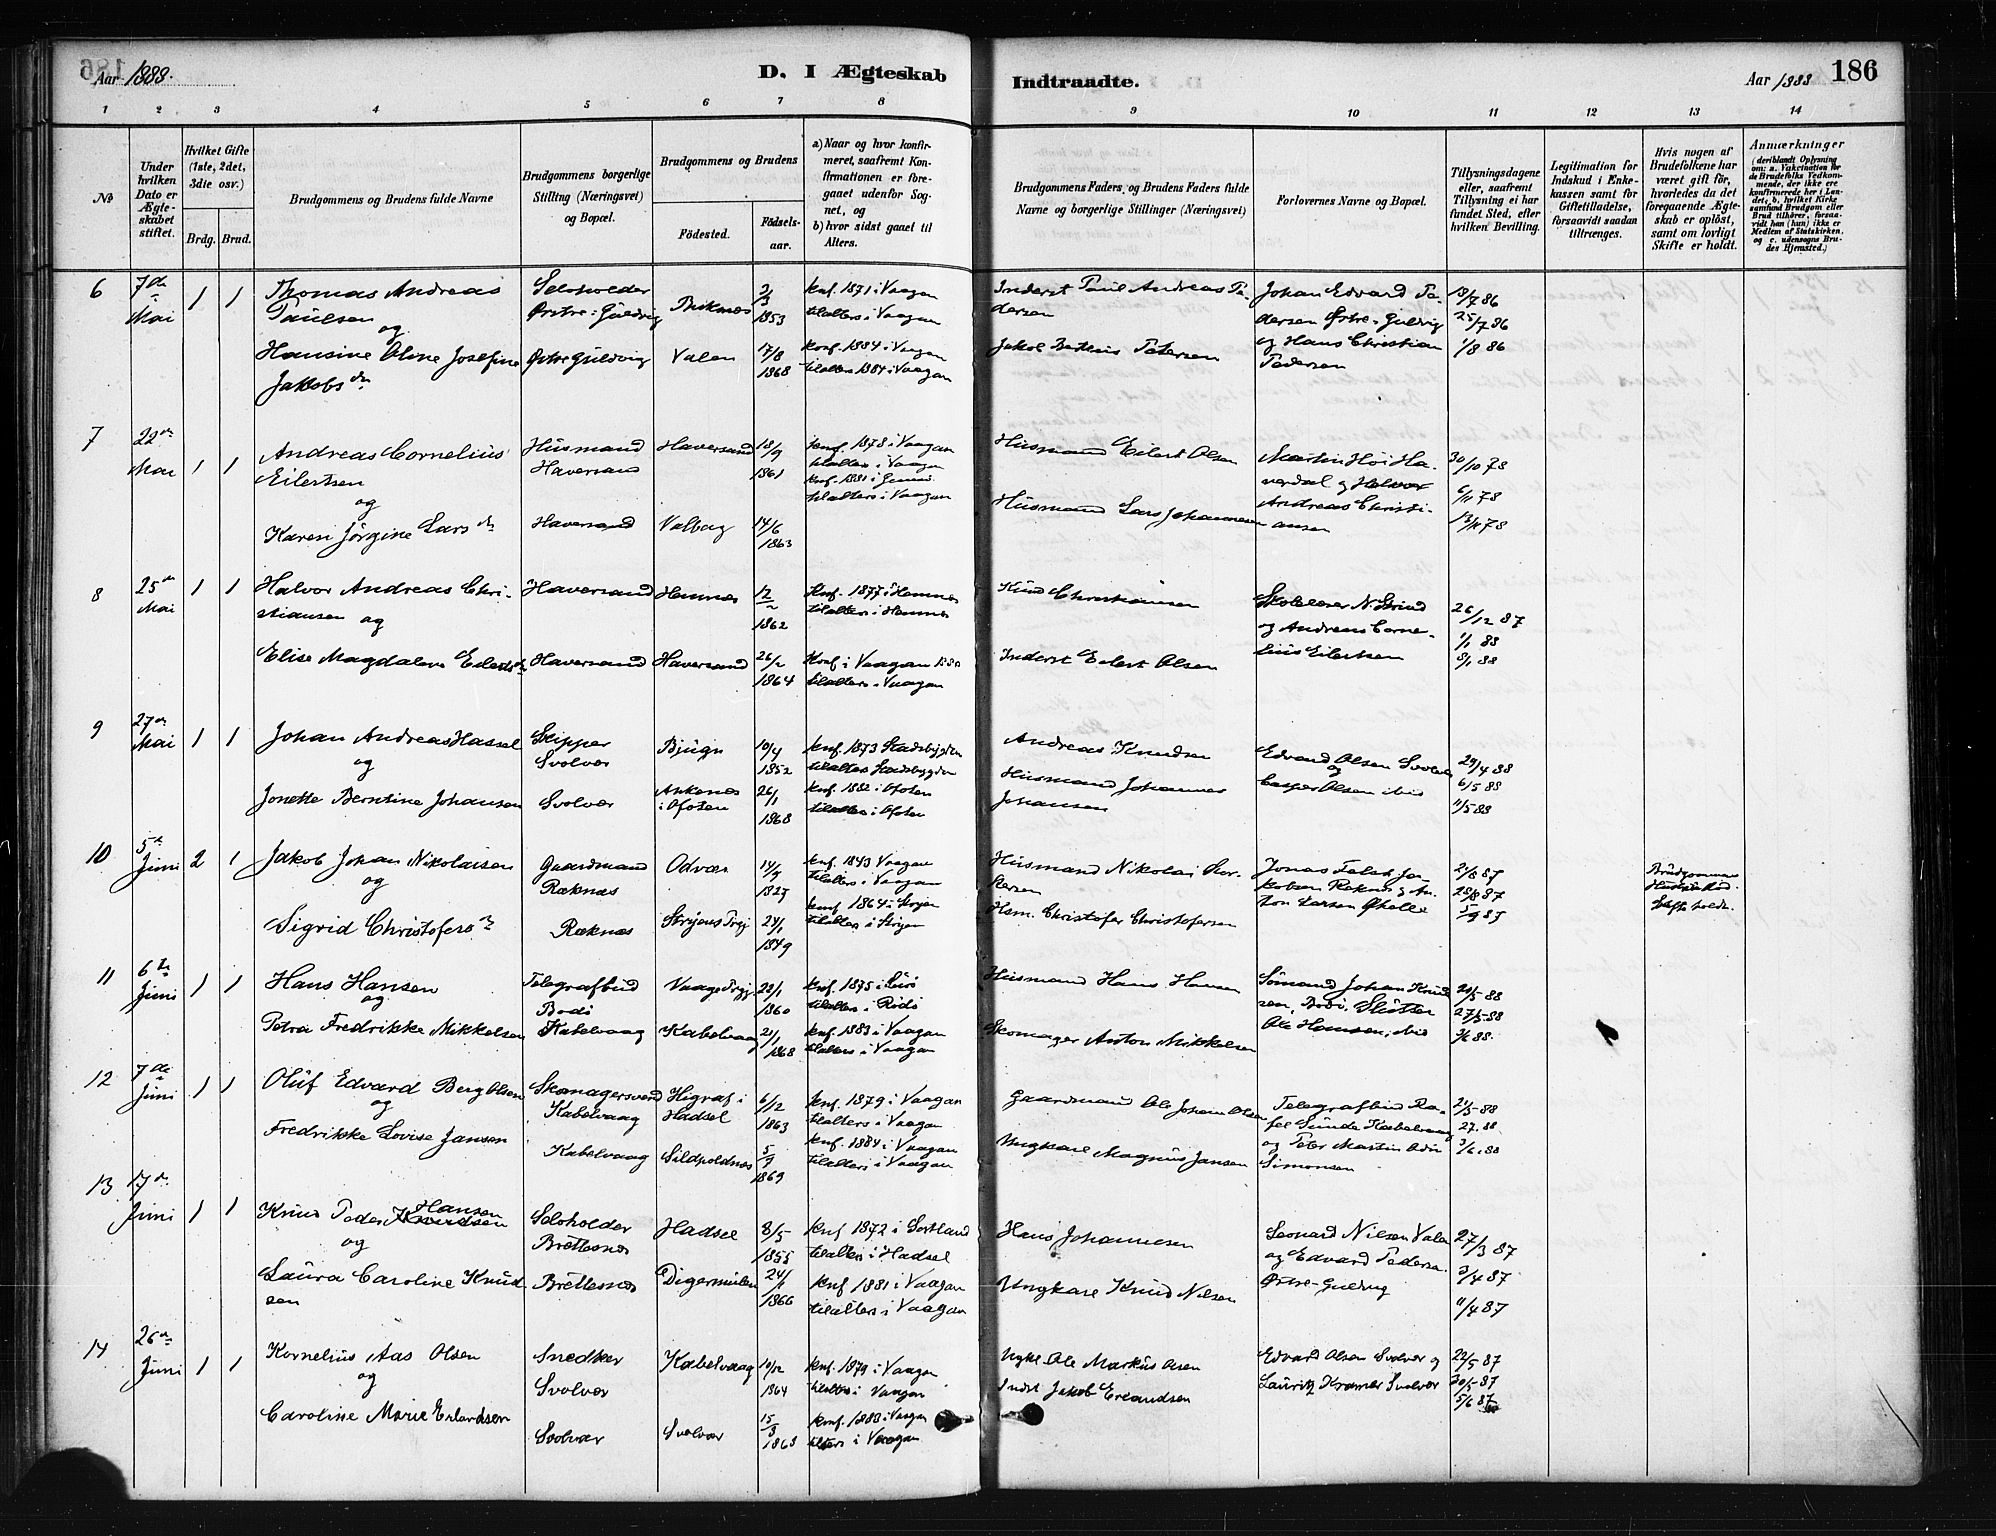 186
Aar 1888.
D. I Ægteskab Indtraadte.
Aar 1888
1 2 3 4 5 6 7 8 9 10 11 12 13 14
No
Under hvilken Dato er Ægteskabet stiftet.
Hvilket Gifte (1ste, 2det, 3die osv.)
Brdg. Brud.
Brudgommens og Brudens fulde Navne
Brudgommens borgerlige Stilling (Næringsvei) og Bopæl.
Brudgommens og Brudens
Fødested.
Fødselsaar.
a) Naar og hvor konfirmeret, saafremt Konfirmationen er foregaaet udenfor Sognet, og
b) hvor sidst gaaet til Alters.
Brudgommens Faders og Brudens Faders fulde Navne og borgerlige Stillinger (Næringsvei)
Forlovernes Navne og Bopæl.
Tillysningsdagene eller, saafremt Tillysning ei har fundet Sted, efter hvilken Bevilling.
Legitimation for Indskud i Enkekassen samt for Giftetilladelse, forsaavidt saadan tiltrænges.
Hvis nogen af Brudefolkene har været gift før, hvorledes da det foregaaende Ægteskab er opløst, samt om lovligt Skifte er holdt.
Anmærkninger
(deriblandt Oplysning om: a. Vakcination for de Brudefolks Vedkommende, der ikke ere konfirmerede her i Landet, b. hvilket Kirkesamfund Brudgom eller Brud tilhører, forsaavidt han (hun) ikke er Medlem af Statskirken, og c. udensogns Brudes Hjemsted.)
6 7de Mai 1 1
Thomas Andreas Paulsen
og
Hansine Oline Josefine Jakobsdr
Selvholder Østre-Guldvig
Østre Guldvig
Valen
1853
17/8 1868
knf. 1871 i Vaagan
tilalters i Vaagan
konf. 1884 i Vaagan
tilalters 1884 i Vaagan
Inderst Paul Andreas Pedersen
Johan Edvard Pedersen Østre-Guldvig
og Hans Christian Pedersen
18/7 86
25/7 86
1/8 86
7 22de Mai 1 1
Andreas Cornelius Eilertsen
og
Karen Jørgine Larsdr
Husmand Haversand
Haversand
Haversand
Valbog
18/9 1861
14/6 1863
knf. 1878 i Vaagan
tilalters i Vaagan
tilalters i Vaagan
Husmand Eilert Olsen
Husmand Lars Johannesen
Andreas Christiansen
30/10 78
6/11 78
13/11 78
8 25de Mai 1 1
Halvor Andreas Christiansen og
Elise Magdalene Eilertsdr
Haversand
Haversand
Hemnes
Haversand
1862
26/2 1864
Knf. 1877 i Hemnes
tilalters i Hemnes
Konf i Vaagan
tilalters i Vaagan
Knud Christiansen
Inderst Eilert Olsen
og Andreas Cornelius Eilertsen
26/12 87
1/1 88
8/1 88
9 27de Mai 1 1
Johan Andreas Hassel
og
Jonette Berntine Johansen
Skipper Svolvær
Svolvær
Bjugn
Ankenes i Ofoten
10/4 1852
26/1 1868
knf. 1873 Stadsbygden
tilalters Stadsbygden
knf. 1882 i Ofoten
tilalters i Ofoten
Andreas Knudsen
Husmand Johannes Johansen
Edvard Olsen Svolvær
og
Casper Olsen ibid
29/4 88
6/5 88
11/5 88
10 5te Juni 2 1
Jakob Johan Nikolaisen
og
Sigrid Christofersdr
Gaardmand Reknæs
Reknæs
Odvær
1827
24/1 1849
knf. 1843 Vaagan
tilalters i Vaagan
konf 1864 i Stryen
tilalters i Stryen
Husmand Nikolai
Hsm. Christofer Christofersen
21/8 87
28/8 87
11 6te Juni 1 1
Hans Hansen
og
Petra Fredrikke Mikkelsen
Telegrafbud Bodø
Kabelvaag
Kabelvaag
1860
21/1 1868
tilalters i Rødø
knf. 1883 i Vaagan
tilalters i Vaagan
Husmand Hans Hansen
Skomager Anton Mikkelsen
Sømand Johan Knudsen, Bodø,
Ole Hansen, ibid
20/5 88
27/5 88
3/6 88
12 7de Juni 1 1
Oluf Edvard Berg Olsen
og
Fredrikke Lovise Jansen
Skomagersvend Kabelvaag
Kabelvaag
Higraf i Hadsel
Sildpoldnes
6/12 1863
1869
knf. 1879 i Vaagan
tilalters i Vaagan
knf. 1884 i Vaagan
tilalters i Vaagan
Gaardmand Ole Johan Olsen
Ungkarl Magnus Jansen
Telegrafbud Rafel Sunde Kabelvaag
og Peter Martin Simonsen
3/6 88
13 17de Juni 1 1
Knud Peder Hansen
og
Laura Caroline Knudsen
Selvholder Brettesnes
Brettesnes
Hadsel
Digermulen
8/5
24/1 1866
knf 1872 i Sortland
tilalters i Hadsel
knf 1881 i Vaagan
tilalters i Vaagan
Hans Johannesen
Ungkarl Knud Nilsen
Leonard Nilsen Valen
og Edvard Pedersen
Østre-Guldvig
27/3 87
3/4 87
11/4 87
14 26de Juni 1 1
Kornelius Aas Olsen
og
Caroline Marie Erlandsen
Snedker Svolvær
Svolvær
Kabelvaag
Svolvær
10/12 1864
15/3
knf. 1879 i Vaagan
tilalters i Vaagan
knf. 1883 i Vaagan
tilalters i Vaagan
Ungk. Ole Markus Olsen
Indst Jakob Erlandsen
Edvard Olsen Svolvær og
Lauritz Kramer Svolvær
22/5 87
30/5 87
5/6 87